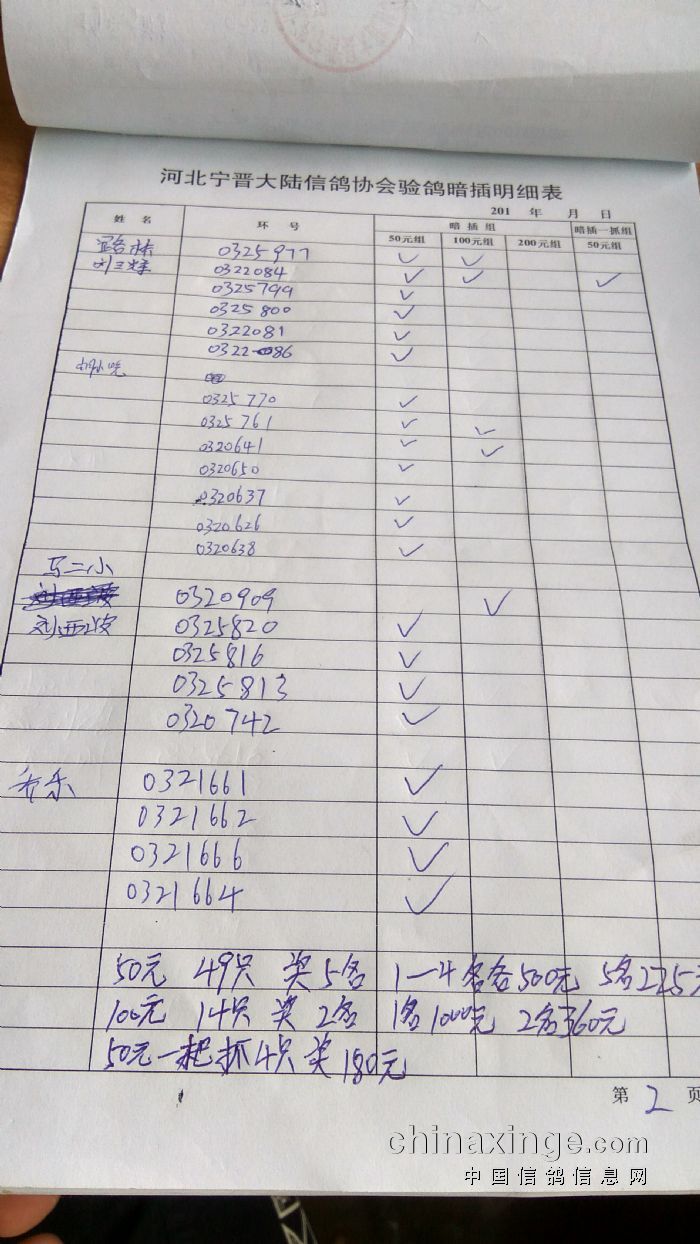 河北宁晋大陆信鸽协会验鸽暗插明细表
201 年 月 日
姓 名 环 号 暗 插 组 暗插一抓组
50元组 100元组 200元组 50元组
0325977 ✓ ✓
0322084 ✓ ✓ ✓
0325799 ✓
0325800 ✓
0322081 ✓
0322086 ✓
0325770 ✓
0325761 ✓ ✓
0320641 ✓ ✓
0320650 ✓
0320637 ✓
0320626 ✓
0320638 ✓
马二小
0320909 ✓
0325820 ✓
0325816 ✓
0325813 ✓
0320742 ✓
0321661 ✓
0321662 ✓
0321666 ✓
0321664 ✓
50元 49只 奖5名 1—4名各500元 5名225元
100元 14只 奖 2名 1名1000元 2名360元
50元一把抓4只奖180元
第 2 页
chinaxinge.com
中国信鸽信息网